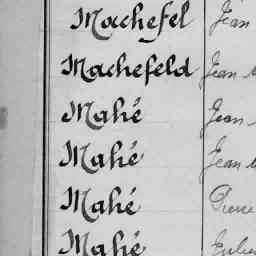 Machefel Jean
Machefeld Jean
Mahé Jean
Mahé Jean
Mahé Pierre
Mahé